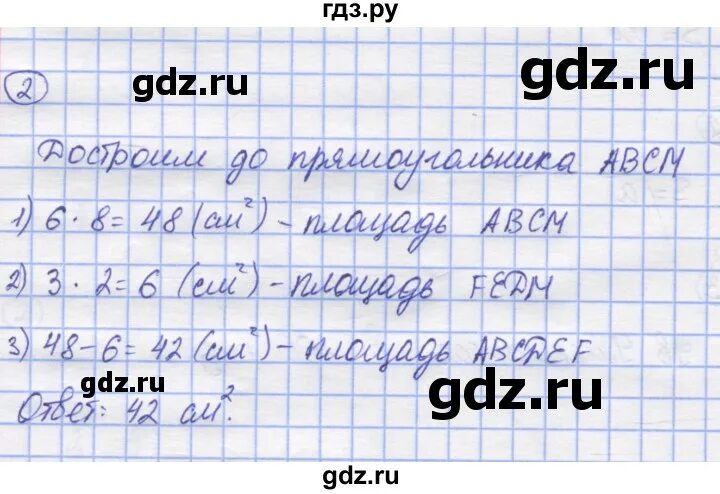 гдз.ру
gdz.ru
gdz.ru
2
Достроим до прямоугольника ABCM
1) 6 · 8 = 48 (см²) – площадь ABCM
2) 3 · 2 = 6 (см²) – площадь FEDM
3) 48 – 6 = 42 (см²) – площадь ABCDEF
gdz.ru
gdz.ru
Ответ: 42 см².
gdz.ru